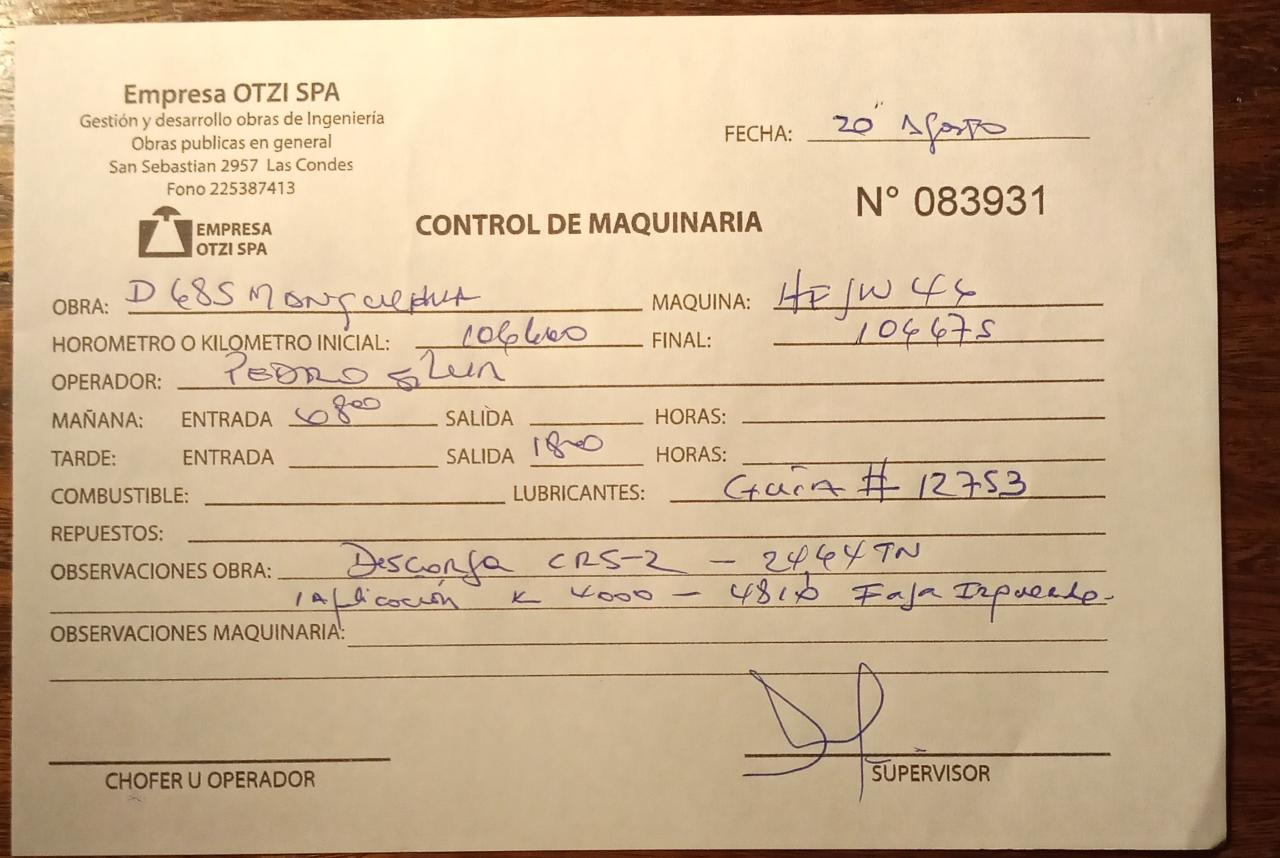 Empresa OTZI SPA
Gestión y desarrollo obras de Ingeniería
Obras publicas en general
San Sebastian 2957 Las Condes
Fono 225387413
EMPRESA
OTZI SPA
FECHA: 20 Agosto
N° 083931
CONTROL DE MAQUINARIA
OBRA: D 685 MAQUINA: 44
HOROMETRO O KILOMETRO INICIAL: FINAL: 104475
OPERADOR: PEDRO
MAÑANA: ENTRADA 800 SALIDA HORAS:
TARDE: ENTRADA SALIDA 1800 HORAS:
COMBUSTIBLE: LUBRICANTES: Guia # 12753
REPUESTOS:
OBSERVACIONES OBRA: Descarga CRS-2 - 24.44 TN
Aplicación K 4000 - Faja Izquierda.
OBSERVACIONES MAQUINARIA:
CHOFER U OPERADOR
SUPERVISOR